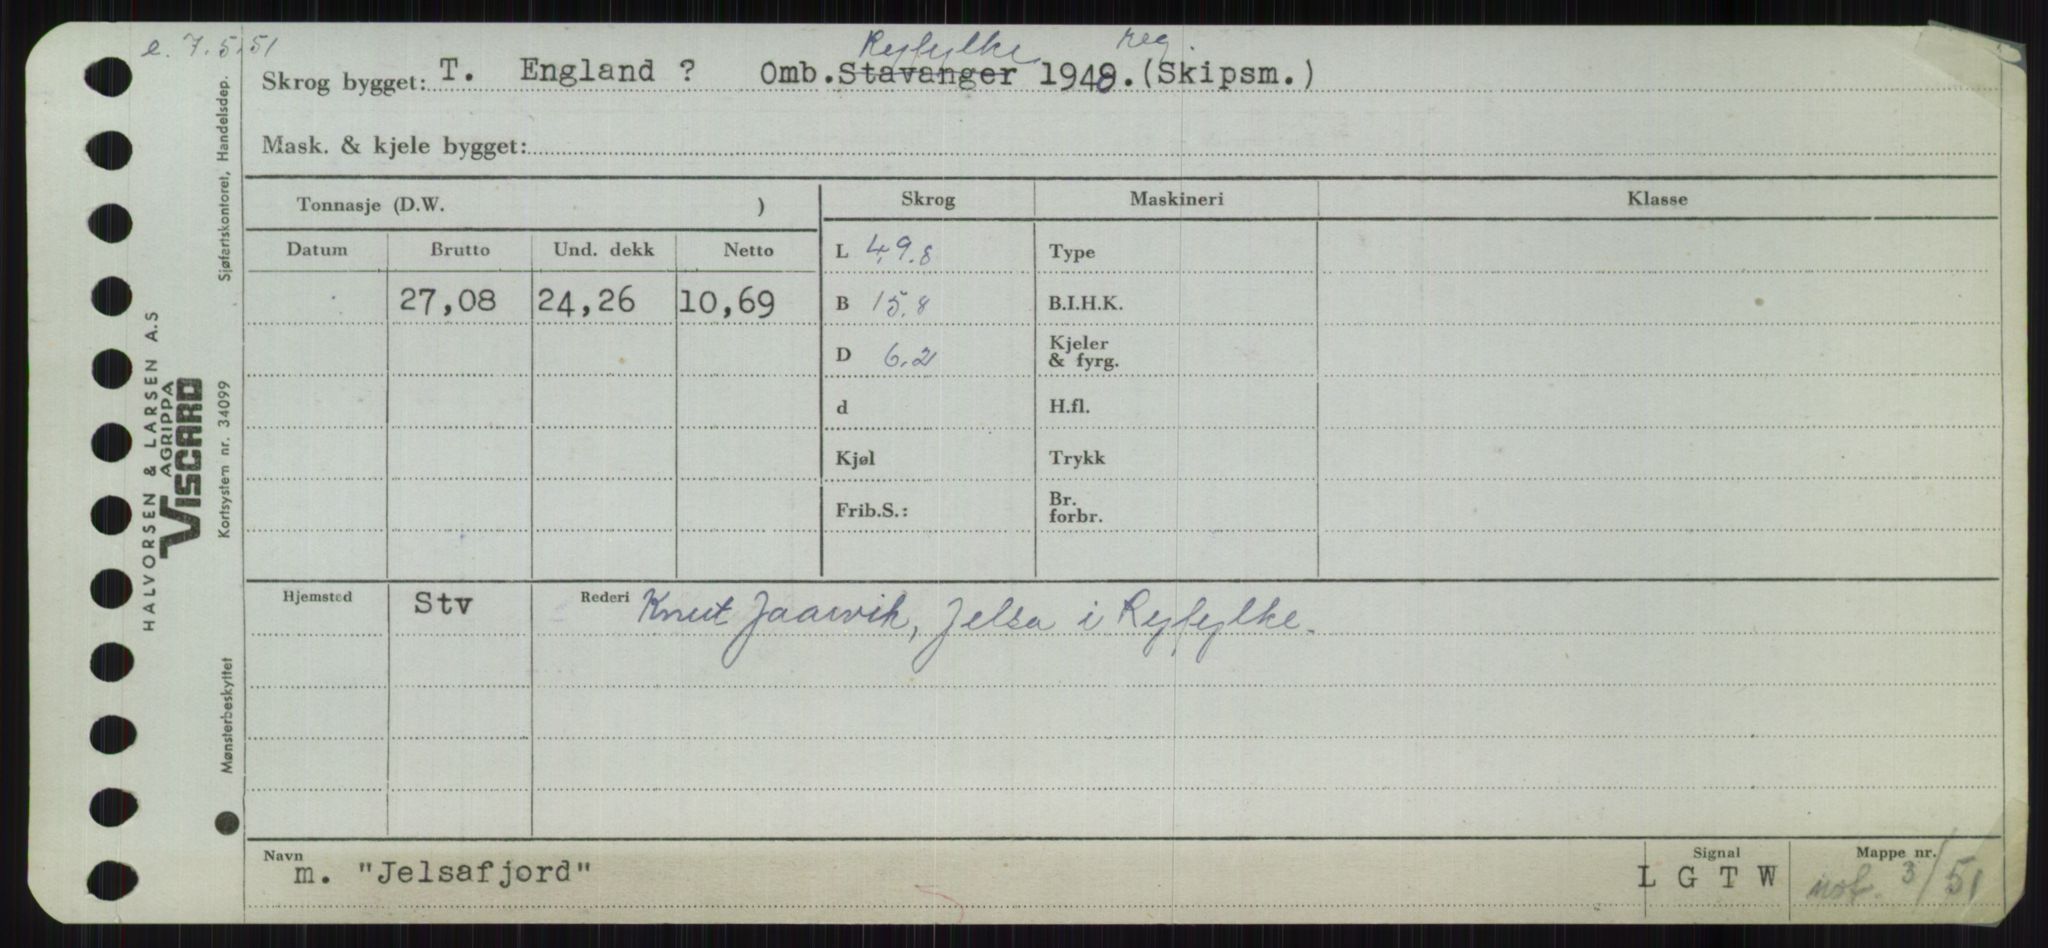 e. 7.5.51
Ryfylke reg.
Skrog bygget: T. England ? Omb. Stavanger 1948. (Skipsm.)
Mask. & kjele bygget:
Tonnasje (D.W. )
Skrog
Maskineri
Klasse
Datum Brutto Und. dekk Netto
27,08 24,26 10,69
L 49.8
B 15.8
D 6.2
d
Kjøl
Frib.S.:
Type
B.I.H.K.
Kjeler
& fyrg.
H.fl.
Trykk
Br.
forbr.
Hjemsted Stv Rederi Knut Jaarvik, Jelsa i Ryfylke.
Navn
m. "Jelsafjord"
Signal
L G T W
Mappe nr.
not. 3/51
HALVORSEN & LARSEN A.S
AGRIPPA
VISCARD
Sjøfartskontoret, Handelsdep.
Kortsystem nr. 34099
Mønsterbeskyttet